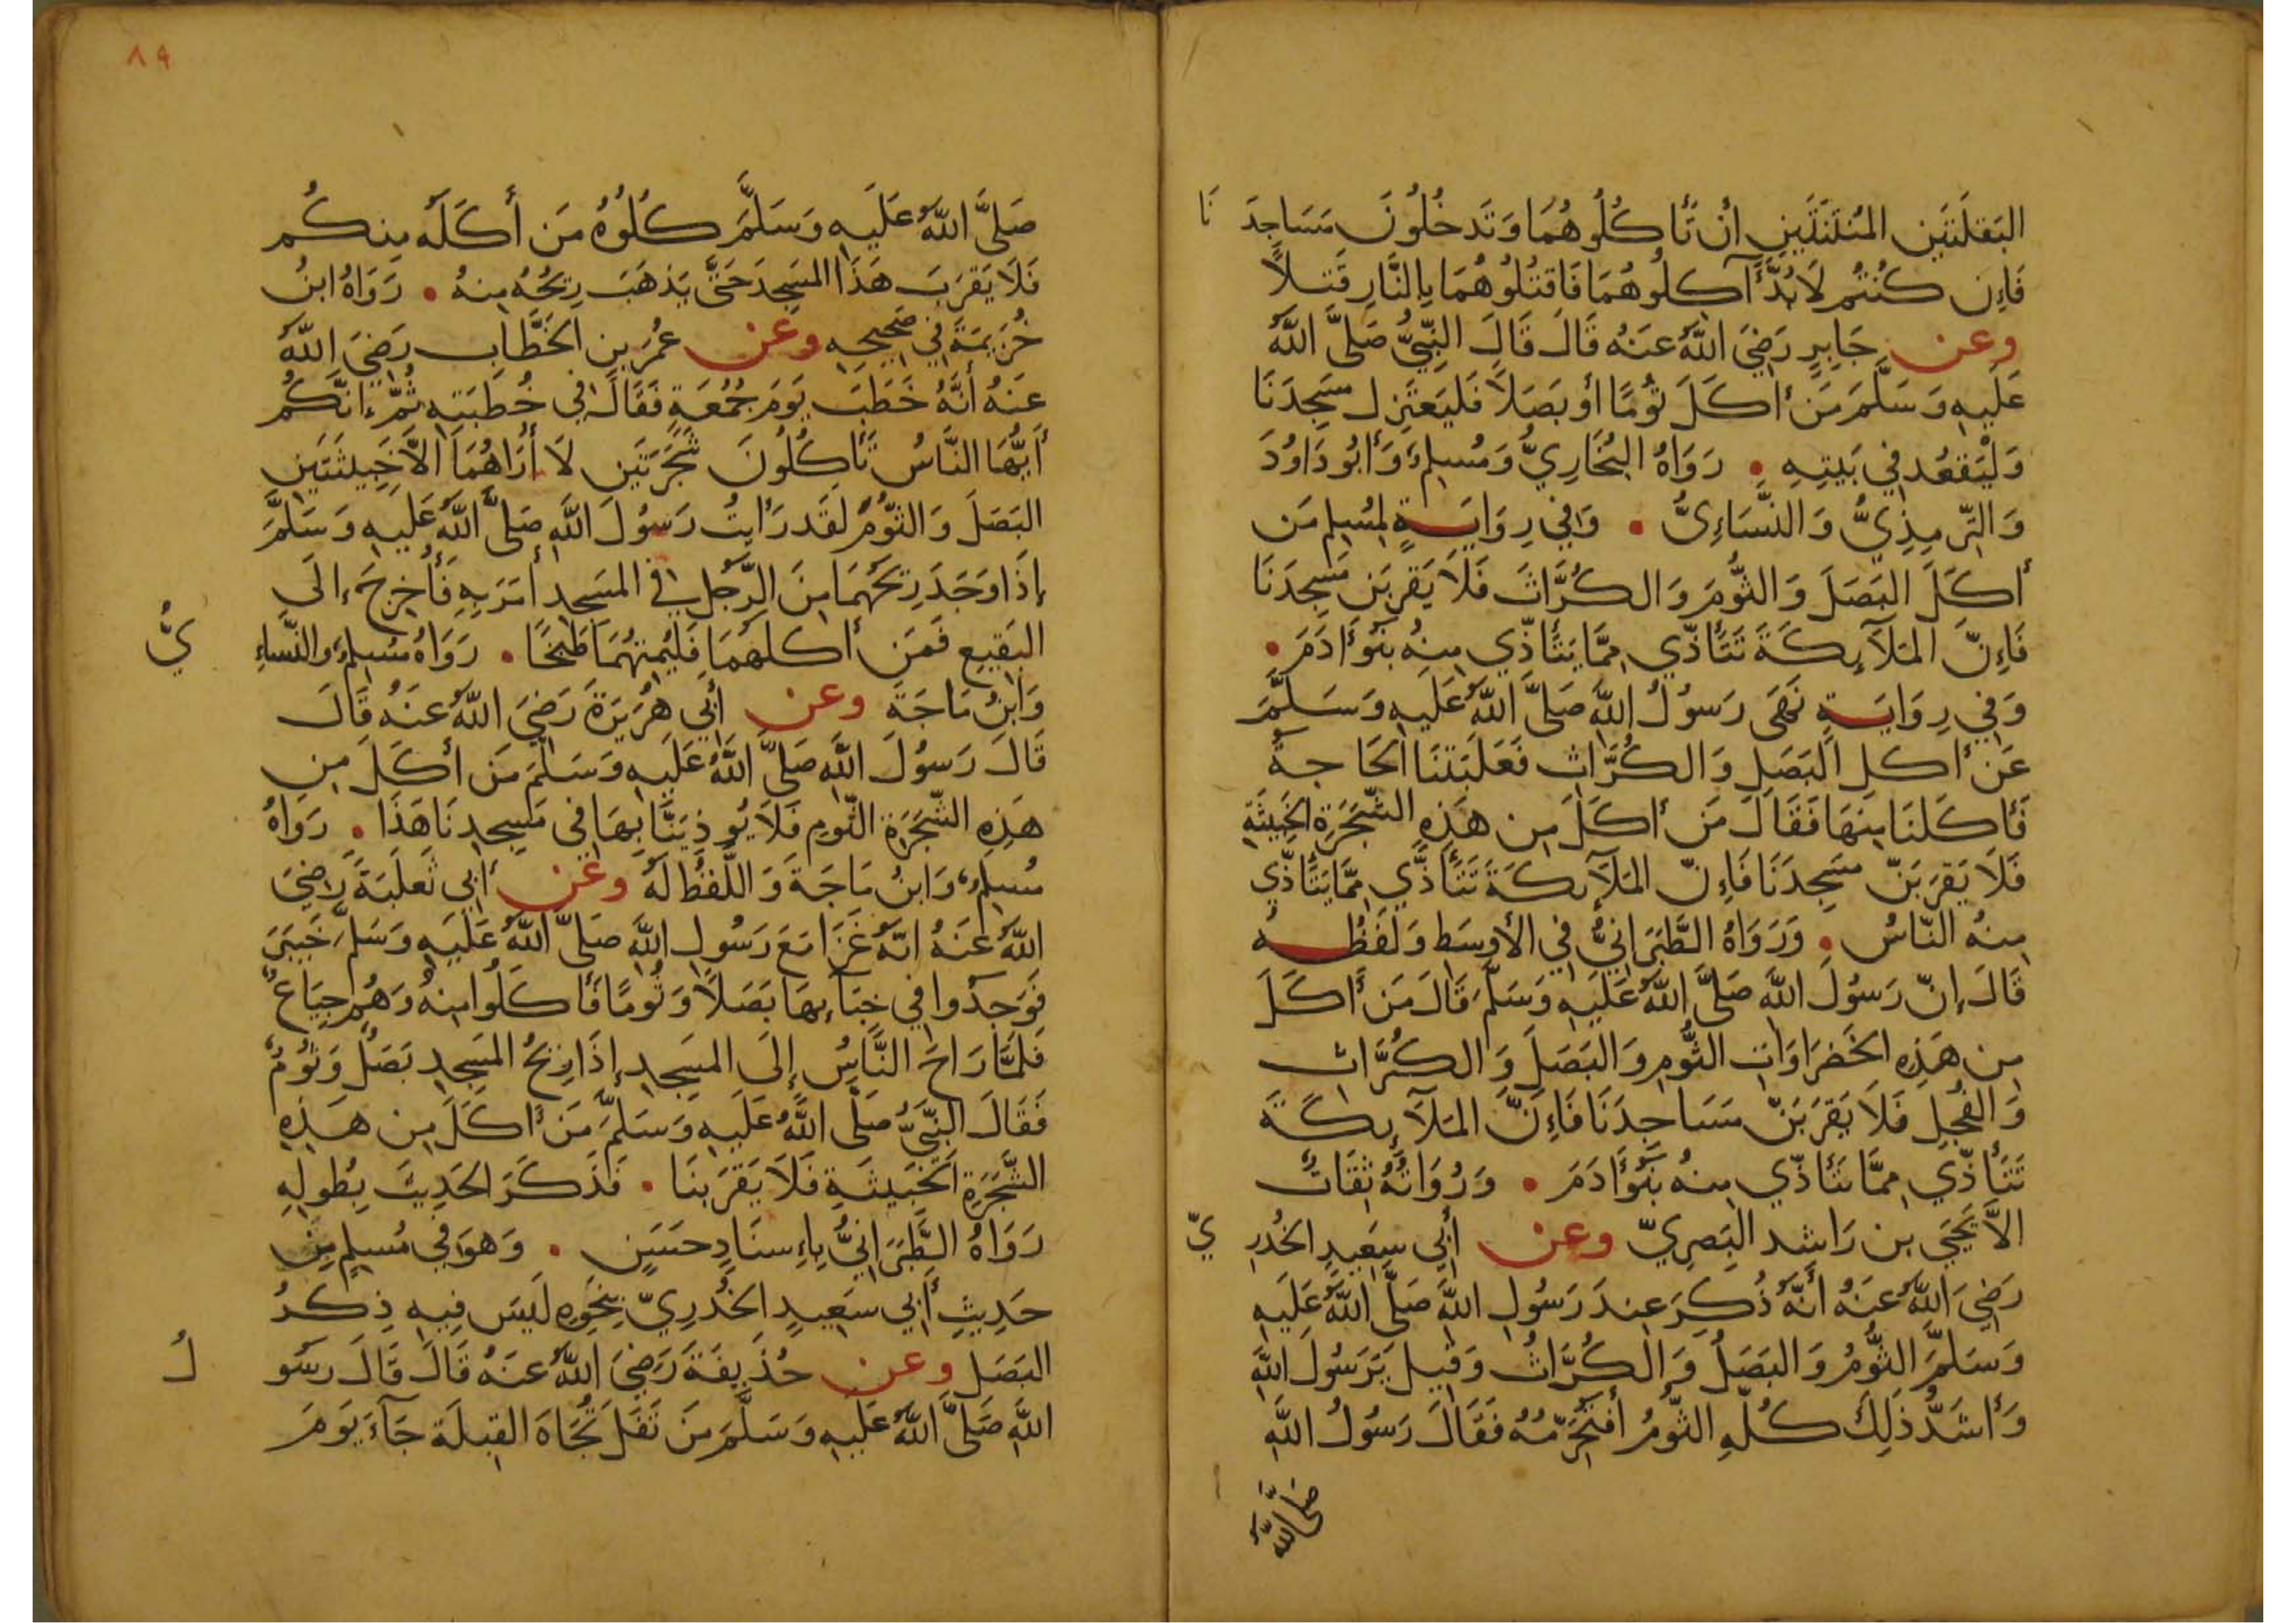 البَقلَتَين المُنتَنَتَينِ أن تَأكُلُوهُمَا وَتَدخُلُونَ مَسَاجِدَنَا
فَإِن كُنتُم لَابُدَّ آكِلُوهُمَا فَاقتُلُوهُمَا بِالنَّارِ قَتلاً
وعن جَابِرٍ رَضِيَ اللَّهُ عَنهُ قَالَ قَالَ النَّبِيُّ صَلَّى اللَّهُ
عَلَيهِ وَسَلَّمَ مَن أكَلَ ثُومًا أو بَصَلاً فَليَعتَزِل مَسجِدَنَا
وَليَقعُد فِي بَيتِهِ • رَوَاهُ البُخَارِيُّ وَمُسلِمٌ وَأبُو دَاوُدَ
وَالتِّرمِذِيُّ وَالنَّسَاءِىُّ • وَفِي رِوَايَةٍ لِمُسلِمٍ مَن
أكَلَ البَصَلَ وَالثُّومَ وَالكُرَّاثَ فَلَا يَقرَبَن مَسجِدَنَا
فَإِنَّ المَلَآئِكَةَ تَتَأذَّي مِمَّا يَتَأذَّي مِنهُ بَنُو آدَمَ •
وَفِي رِوَايَةٍ نَهَى رَسُولُ اللَّهِ صَلَّى اللَّهُ عَلَيهِ وَسَلَّمَ
عَن أكلِ البَصَلِ وَالكُرَّاثِ فَغَلَبَتنَا الحَاجَةُ
فَأكَلنَا مِنهَا فَقَالَ مَن أكَلَ مِن هَذِهِ الشَّجَرَةِ الخَبِيثَةِ
فَلَا يَقرَبَنَّ مَسجِدَنَا فَإِنَّ المَلَآئِكَةَ تَتَأذَّي مِمَّا يَتَأذَّي
مِنهُ النَّاسُ • وَرَوَاهُ الطَّبَرَانِيُّ فِي الأوسَط وَلَفظُهُ
قَالَ إِنَّ رَسُولَ اللَّهِ صَلَّى اللَّهُ عَلَيهِ وَسَلَّمَ قَالَ مَن أكَلَ
مِن هَذِهِ الخَضرَاوَاتِ الثُّومِ وَالبَصَلِ وَالكُرَّاثِ
وَالفُجلِ فَلَا يَقرَبَنَّ مَسَاجِدَنَا فَإِنَّ المَلَآئِكَةَ
تَتَأذَّي مِمَّا تَتَأذَّي مِنهُ بَنُو آدَمَ • وَرُوَاتُهُ ثِقَاتٌ
الاَّ يَحيَي بن رَاشِد البَصرِيّ وعن أبِي سَعِيدٍ الخُدرِيّ
رَضِيَ اللَّهُ عَنهُ أنَّهُ ذُكِرَ عِندَ رَسُولِ اللَّهِ صَلَّى اللَّهُ عَلَيهِ
وَسَلَّمَ الثُّومُ وَالبَصَلُ وَالكُرَّاثُ وَقِيلَ يَرَسُولَ اللَّهِ
وَأشَدُّ ذَلِكَ كُلِّهِ الثُّومُ أفَتُحَرِّمُهُ فَقَالَ رَسُولُ اللَّهِ
صَلَّى اللَّهُ
٨٩
صَلَّى اللَّهُ عَلَيهِ وَسَلَّمَ كُلُوهُ مَن أكَلَهُ مِنكُم
فَلَا يَقرَب هَذَا المَسجِدَ حَتَّى يَذهَبَ رِيحُهُ مِنهُ • رَوَاهُ ابنُ
خُزَيمَةَ فِي صَحِيحِهِ وعن عُمَرَ بنِ الخَطَّابِ رَضِيَ اللَّهُ
عَنهُ أنَّهُ خَطَبَ يَومَ جُمُعَةٍ فَقَالَ فِي خُطبَتِهِ ثُمَّ إنَّكُم
أيُّهَا النَّاسُ تَأكُلُونَ شَجَرَتَين لَا أرَاهُمَا الاَّ خَبِيثَتَينِ
البَصَلَ وَالثُّومَ لَقَد رَأيتُ رَسُولَ اللَّهِ صَلَّى اللَّهُ عَلَيهِ وَسَلَّمَ
إذَا وَجَدَ رِيحَهُمَا مِنَ الرَّجُلِ فِي المَسجِدِ أمَرَ بِهِ فَأُخرِجَ إلَى
البَقِيعِ فَمَن أكَلَهُمَا فَليُمِتهُمَا طَبخًا • رَوَاهُ مُسلِمٌ وَالنَّسَاءِيُّ
وَابنُ مَاجَةَ وعن أبِي هُرَيرَةَ رَضِيَ اللَّهُ عَنهُ قَالَ
قَالَ رَسُولَ اللَّهِ صَلَّى اللَّهُ عَلَيهِ وَسَلَّمَ مَن أكَلَ مِن
هَذِهِ الشَّجَرَةِ الثُّومِ فَلَا يُوذِيَنَّا بِهَا فِي مَسجِدِنَا هَذَا • رَوَاهُ
مُسلِمٌ وَابنُ مَاجَةَ وَاللَّفظُ لَهُ وعن أبِي ثَعلَبَةَ رَضِيَ
اللَّهُ عَنهُ انَّهُ غَزَا مَعَ رَسُولِ اللَّهِ صَلَّى اللَّهُ عَلَيهِ وَسَلَّمَ خَيبَرَ
فَوَجَدُوا فِي جَنَآئِهَا بَصَلاً وَثُومًا فَأكَلُوا مِنهُ وَهُم جِيَاعٌ
فَلَمَّا رَاحَ النَّاسُ إلَى المَسجِدِ إذَا رِيحُ المَسجِدِ بَصَلٌ وَثُومٌ
فَقَالَ النَّبِيُّ صَلَّى اللَّهُ عَلَيهِ وَسَلَّمَ مَن أكَلَ مِن هَذِهِ
الشَّجَرَةِ الخَبِيثَةِ فَلَا يَقرَبنَا • فَذَكَرَ الحَدِيثَ بِطُولِهِ
رَوَاهُ الطَّبَرَانِيُّ بِإسنَادٍ حَسَنٍ • وَهوَ فِي مُسلِمٍ مِن
حَدِيثِ أبِي سَعِيدٍ الخُدرِيّ بِنَحوِهِ لَيسَ فِيهِ ذِكرُ
البَصَل وعن حُذَيفَةَ رَضِيَ اللَّهُ عَنهُ قَالَ قَالَ رَسُولُ
اللَّهِ صَلَّى اللَّهُ عَلَيهِ وَسَلَّمَ مَن تَفَلَ تُجَاهَ القِبلَةِ جَآءَ يَومَ